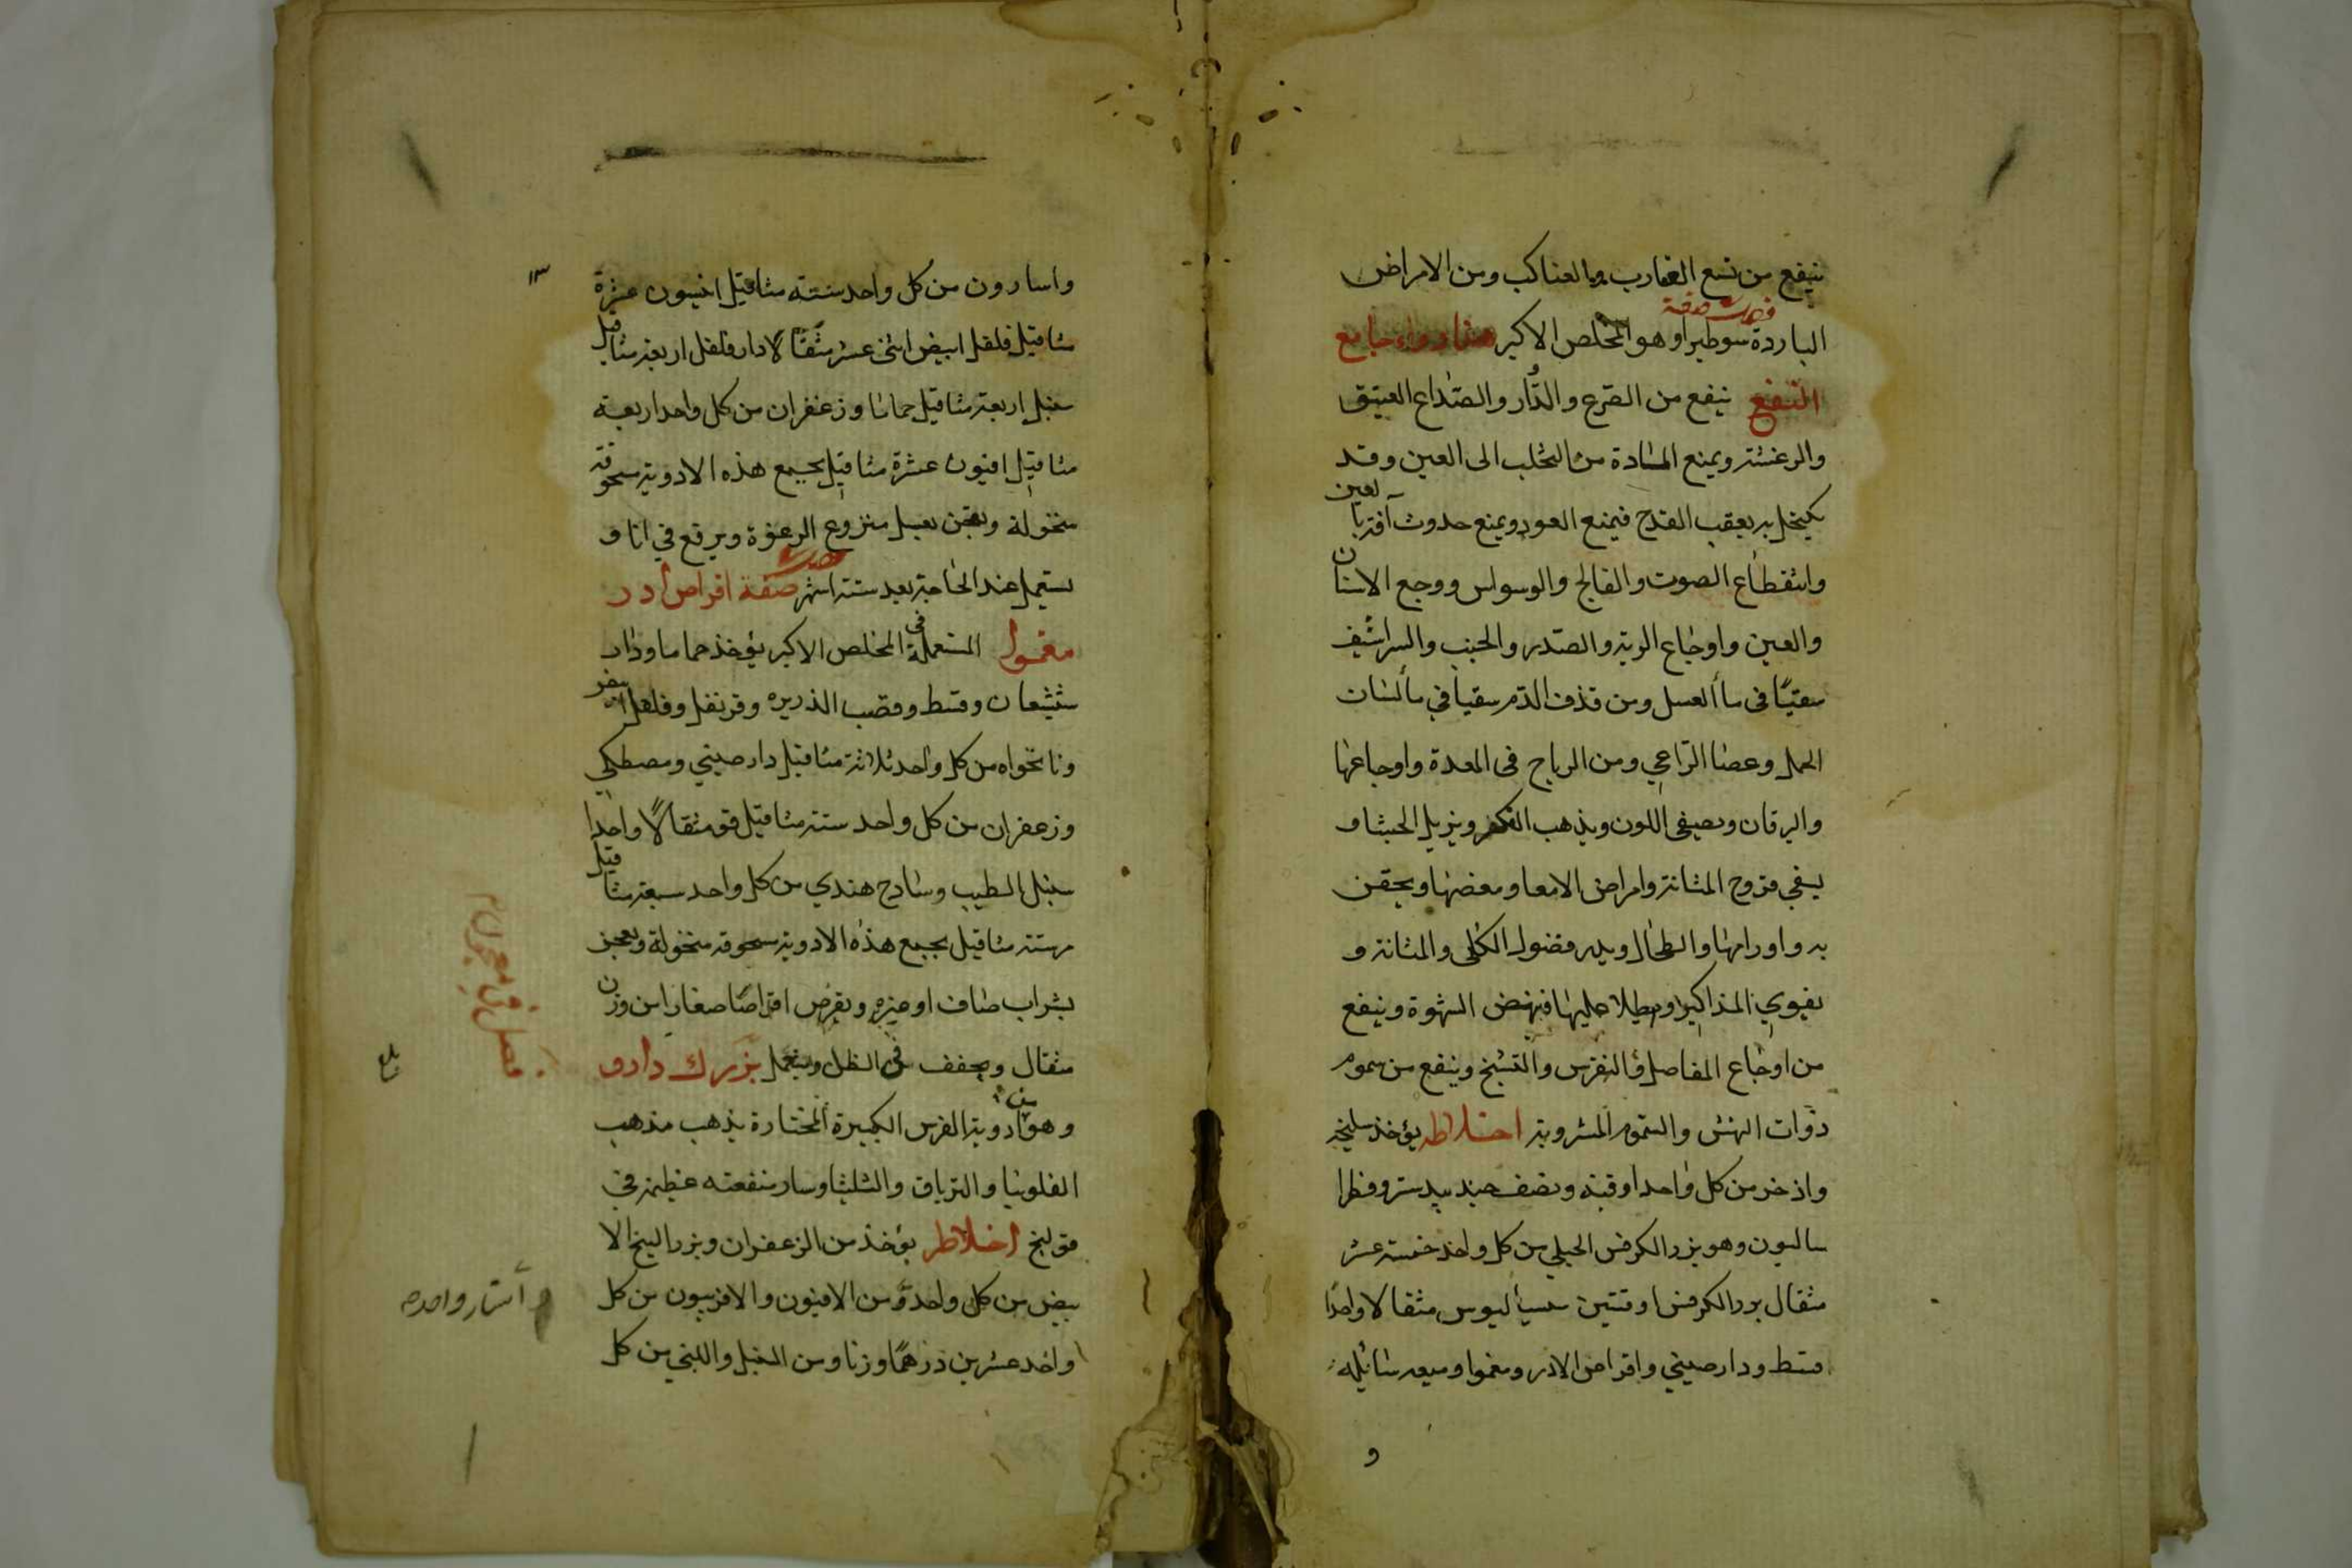 ينفع من لسع العقارب والعناكب ومن الامراض
الباردة سوطيرا وهو المخلص الاكبر هذا دواء جامع
النفع ينفع من الصرع والدُّوار والصداع العتيق
والرعشة ويمنع المادة من التحلب الى العين وقد
يكتحل به بعقب القدح فيمنع العود ويمنع حدوث آفة بالعين
وانقطاع الصوت والفالج والوسواس ووجع الاسنان
والعين واوجاع الرية والصدر والجنب والشراسيف
سقيًا في ماأ العسل ومن قذف الدم سقيا في مأ لسان
الحمل وعصا الراعي ومن الرياح في المعدة واوجاعها
واليرقان ويصفى اللون ويذهب الفكر ويزيل الجشا و
يشفي قروح المثانة وامراض الامعا ومغصها ويحقن
به واورامها والطحال ويدر فضول الكلى والمثانة و
يقوي المذاكير ويطلا عليها فينهض الشهوة وينفع
من اوجاع المفاصل والنقرس والتشنج وينفع من سموم
ذوات النهش والسموم المشروبة اخلاطه يؤخذ سليخة
واذخر من كل واحد اوقية ونصف جندبيدستر وفطرا
ساليون وهو بزر الكرفس الجبلي من كل واحد خمسة عشر
مثقال بزر الكرفس اوقيتين سسياليوس مثقالا واحدًا
قسط ودار صيني واقراض الادر ومغموا وميعه سائله
و
واسارون من كل واحد ستة مثاقيل انيسون عشرة
مثاقيل فلفل ابيض اثنى عشر مثقالا دار فلفل اربعة مثاقيل
سنبل اربعة مثاقيل حماما وزعفران من كل واحد اربعة
مثاقيل افيون عشرة مثاقيل يجمع هذه الادوية مسحوقة
منخولة وتعجن بعسل منزوع الرغوة ويرفع في انا و
يستعمل عند الحاجة بعد ستة اشهر صفة اقراص ادر
مغمول المستعملة في المخلص الاكبر يؤخذ حماما ودار
شيشعان وقسط وقصب الذريره وقرنفل وفلفل اصفر
ونانخواه من كل واحد ثلاثة مثاقيل دار صيني ومصطكي
وزعفران من كل واحد ستة مثاقيل فو مثقالًا واحدا
سنبل الطيب وسادج هندي من كل واحد سبعة مثاقيل
مر ستة مثاقيل يجمع هذه الادوية مسحوقة منخولة وتعجن
بشراب صاف او غيره ويقرص اقراصًا صغارا من وزن
مثقال ويجفف في الظل ويستعمل بزرك دارو
وهو من ادوية الفرس الكبيرة المختارة يذهب مذهب
الفلونيا والترياق والشليثا وسار منفعته عظيمة في
قولنج اخلاطه يؤخذ من الزعفران وبزر البنج الا
بيض من كل واحد ومن الافيون والافربيون من كل
واحد عشرين درهمًا وزنا ومن السنبل واللبني من كل
فصل في معجون
بلغ
أستار واحده